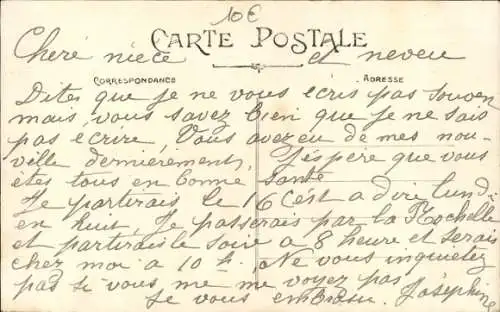 10€
CARTE POSTALE
Cheré niece et neveu
CORRESPONDANCE
ADRESSE
Dites que je ne vous ecris pas souven
mais vous savez bien que je ne sais
pas ecrire, Vous avez eu de mes nou-
ville dernierement, J'espère que vous
êtes tous en bonne santé
Je partirais le 16 c'ést a dire lundi
en huit, Je passerais par la Rochelle
et partirais le soire a 8 heure et serais
chez moi a 10 h, Ne vous inquietez
pas si vous me me voyez pas
Je vous embrasse Joséphine